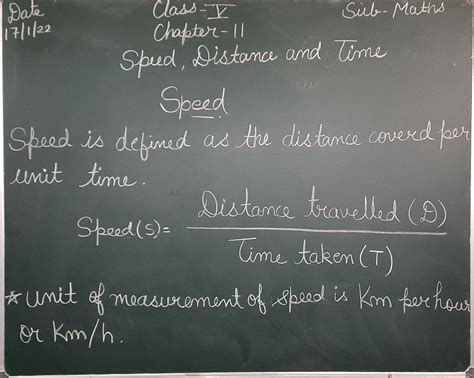 Date Class-V Sub-Maths
17/1/22 Chapter-11
Speed, Distance and Time
Speed
Speed is defined as the distance coverd per
unit time.
Speed(s)= Distance travelled (D)
Time taken (T)
* unit of measurement of speed is Km per hour
or Km/h.